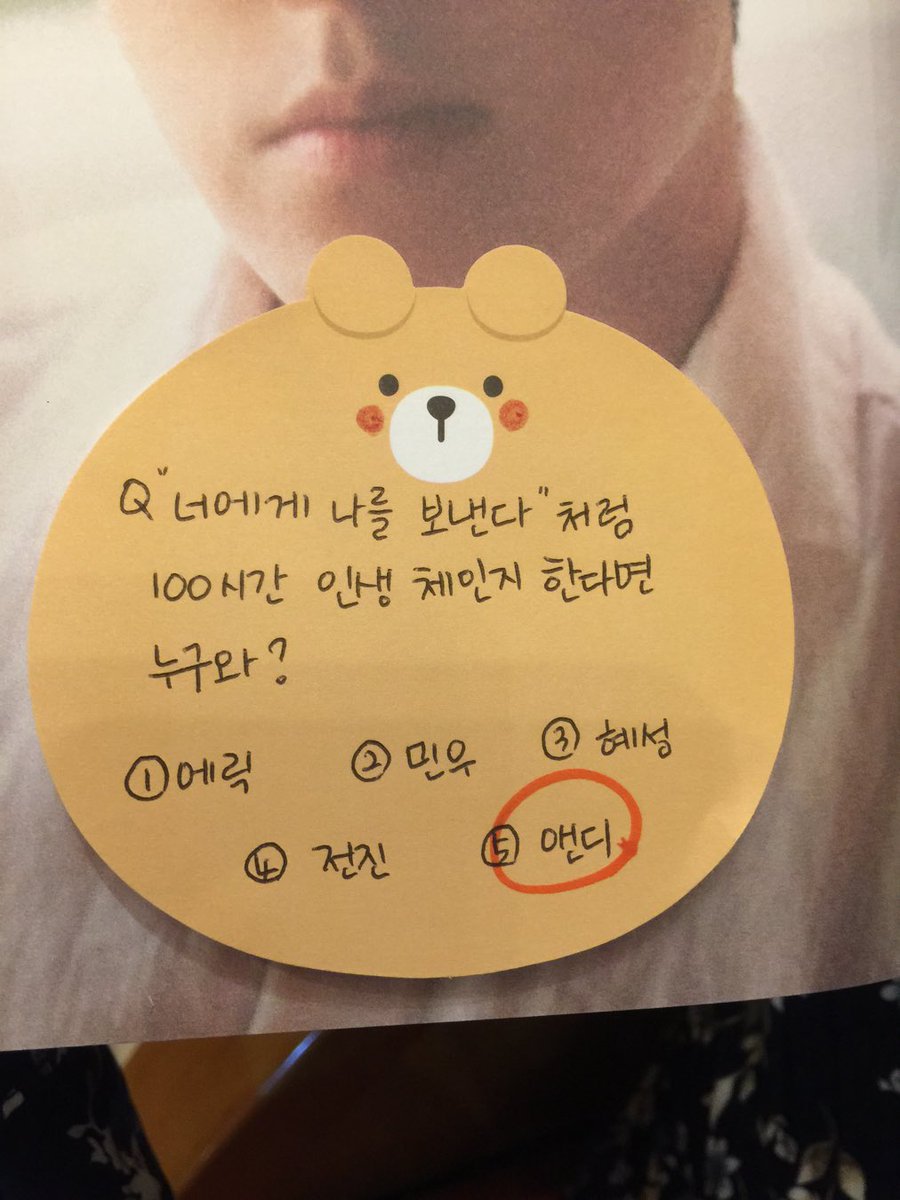 Q "너에게 나를 보낸다" 처럼
100시간 인생 체인지 한다면
누구와?
① 에릭 ② 민우 ③ 혜성
④ 전진 ⑤ 앤디